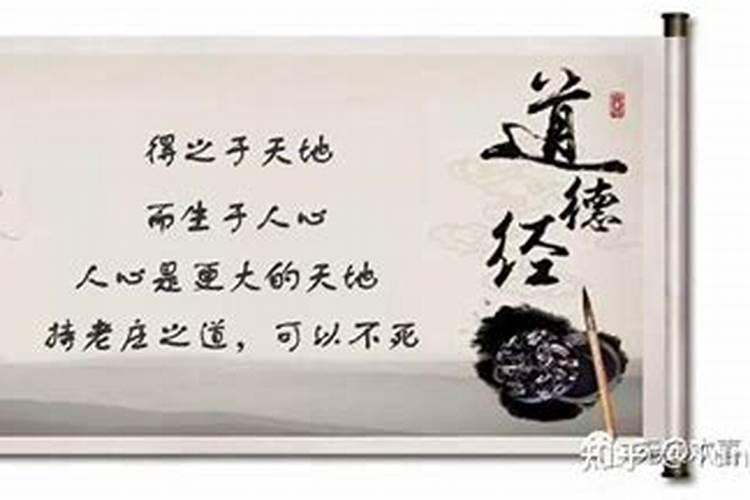 道德经
得之于天地
而生于人心
人心是更大的天地
持老庄之道，可以不死
知乎